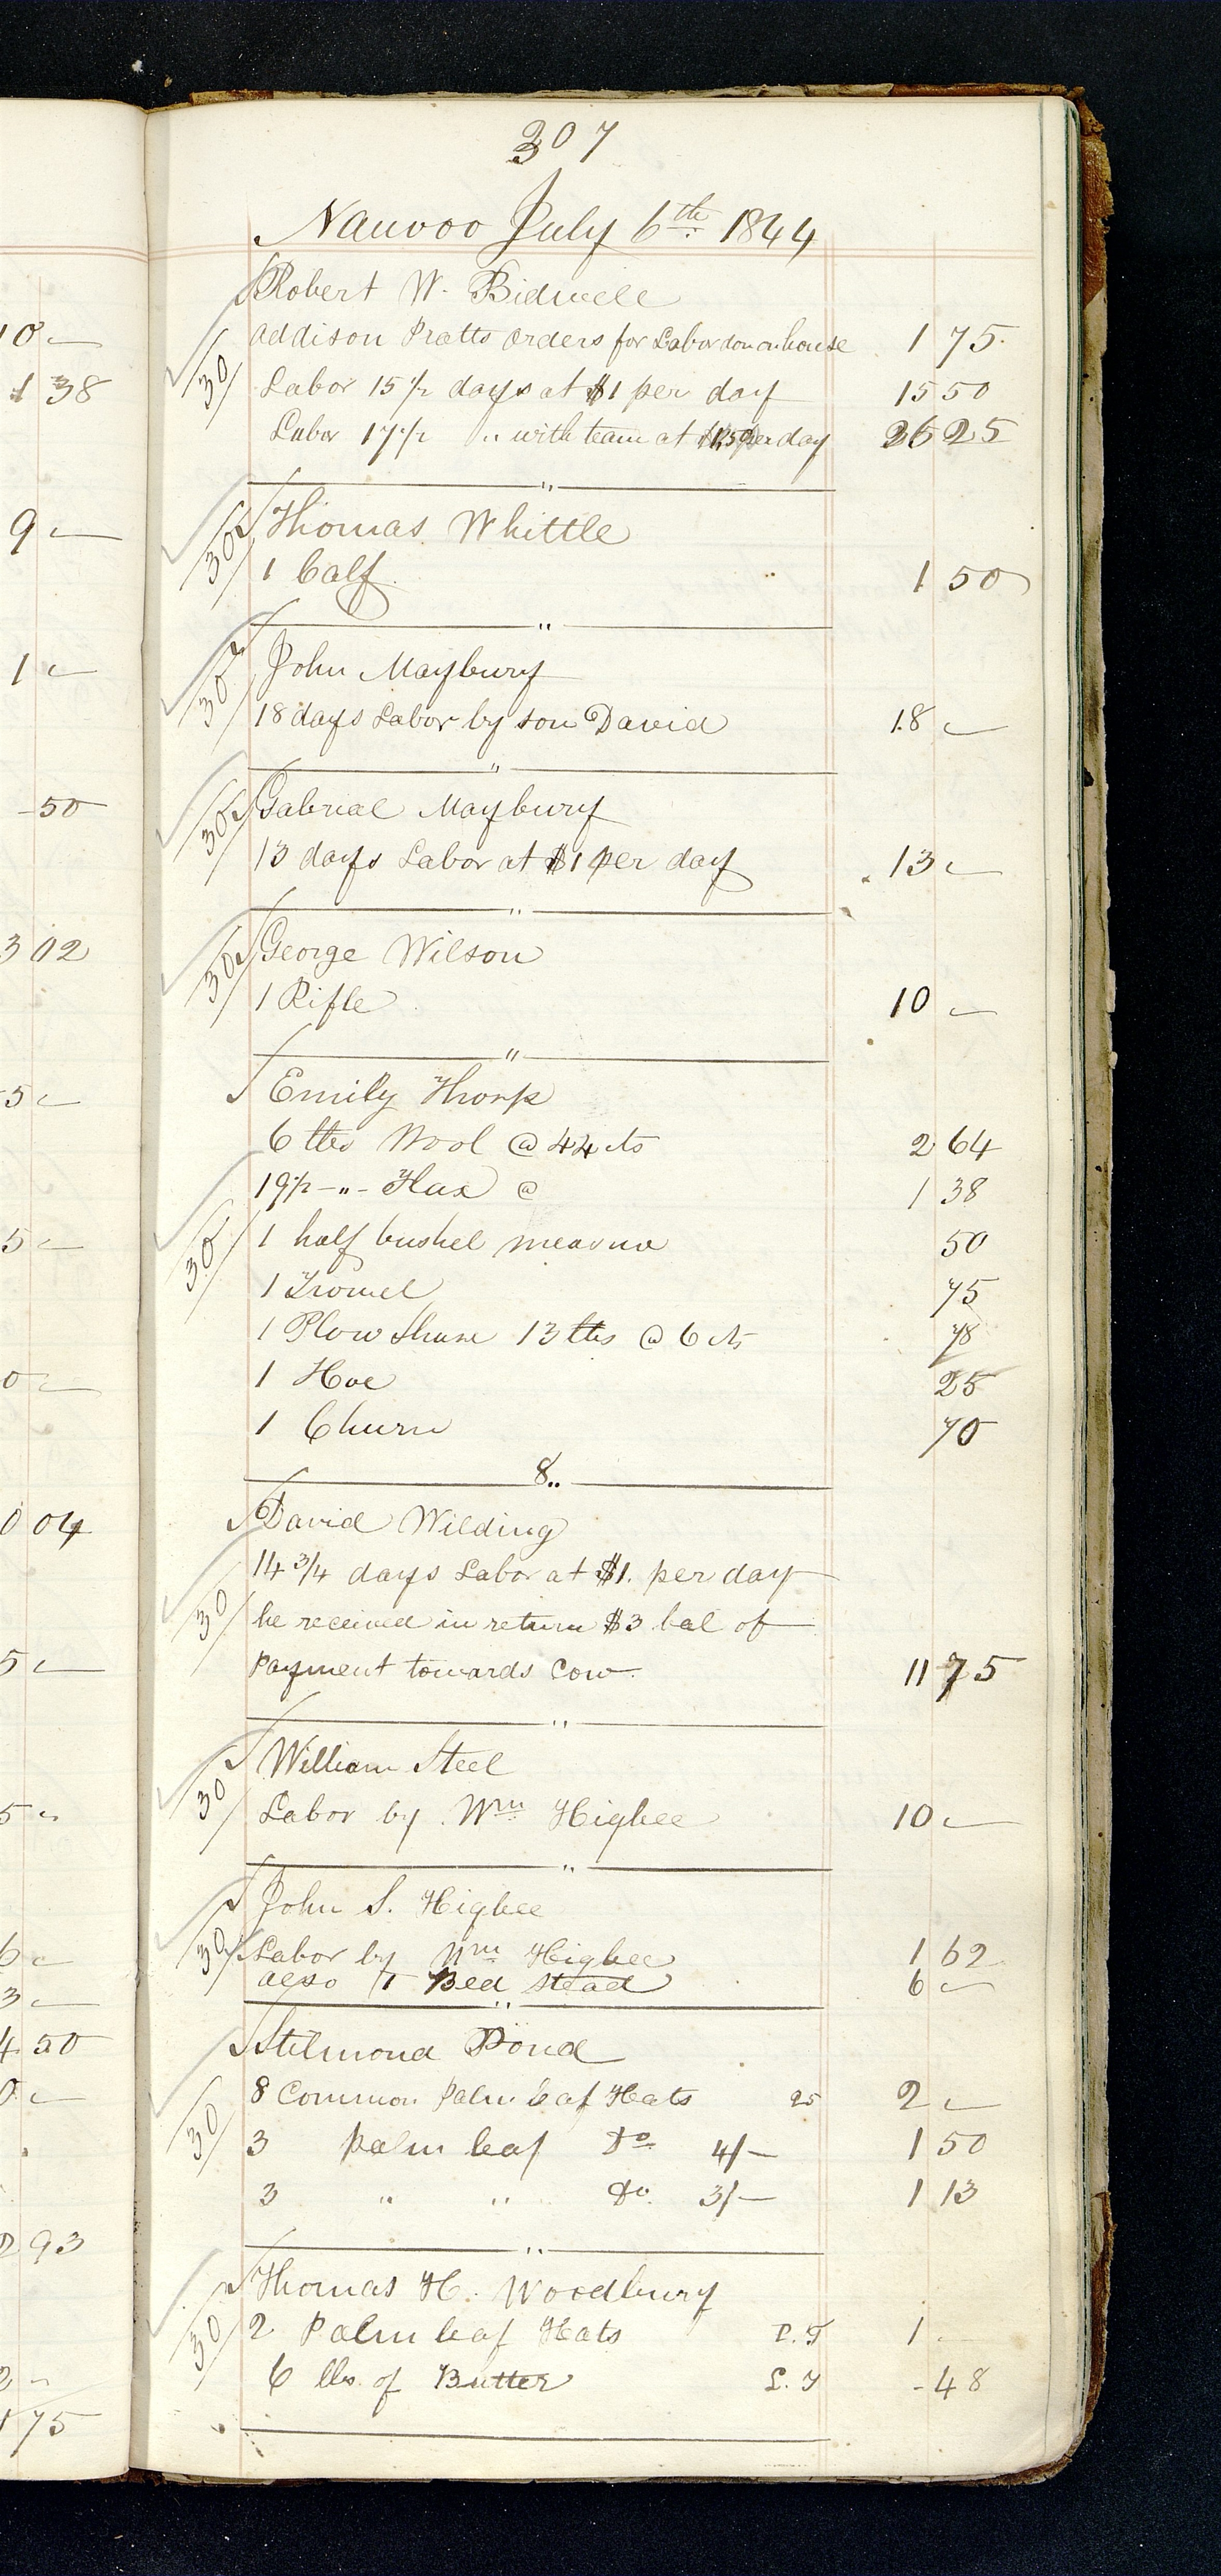 307
Nauvoo July 6th 1844
Robert W. Bidwell
Addison Pratts orders for Labor don on house 1 75
30
Labor 15 1/2 days at $1 per day 15 50
Labor 17 1/2 " with team at $1,50 per day 26 25
"
Thomas Whittle
30
1 Calf 1 50
"
John Maybury
30
18 days Labor by son David 18 —
"
Gabrial Maybury
30
13 days Labor at $1 per day 13 —
"
George Wilson
30
1 Rifle 10 —
"
Emily Thorp
6 lbs Wool @ 44 cts 2 64
19 1/2 - " - Flax @ 1 38
30
1 half bushel measure 50
1 Trowel 75
1 Plow Share 13 lbs @ 6 cts 78
1 Hoe 25
1 Churn 70
8..
David Wilding
14 3/4 days Labor at $1. per day
30
he received in return $3 bal of
payment towards Cow 11 75
"
William Steel
30
Labor by Wm Higbee 10 —
"
John S. Higbee
30
Labor by Wm Higbee 1 62
also 1 Bed stead 6 —
"
Stilmond Pond
8 Common Palm leaf Hats 25 2 —
30
3 palm leaf Do 4/— 1 50
3 " " Do. 3/— 1 13
"
Thomas H. Woodbury
30
2 Palm leaf Hats 1 -
6 lbs. of Butter - 48
10 —
1 38
9 —
1 —
-50
3 02
5 —
5 —
0 —
0 04
5 —
5 "
6 —
3 —
4 50
0 —
2 93
2 —
1 75